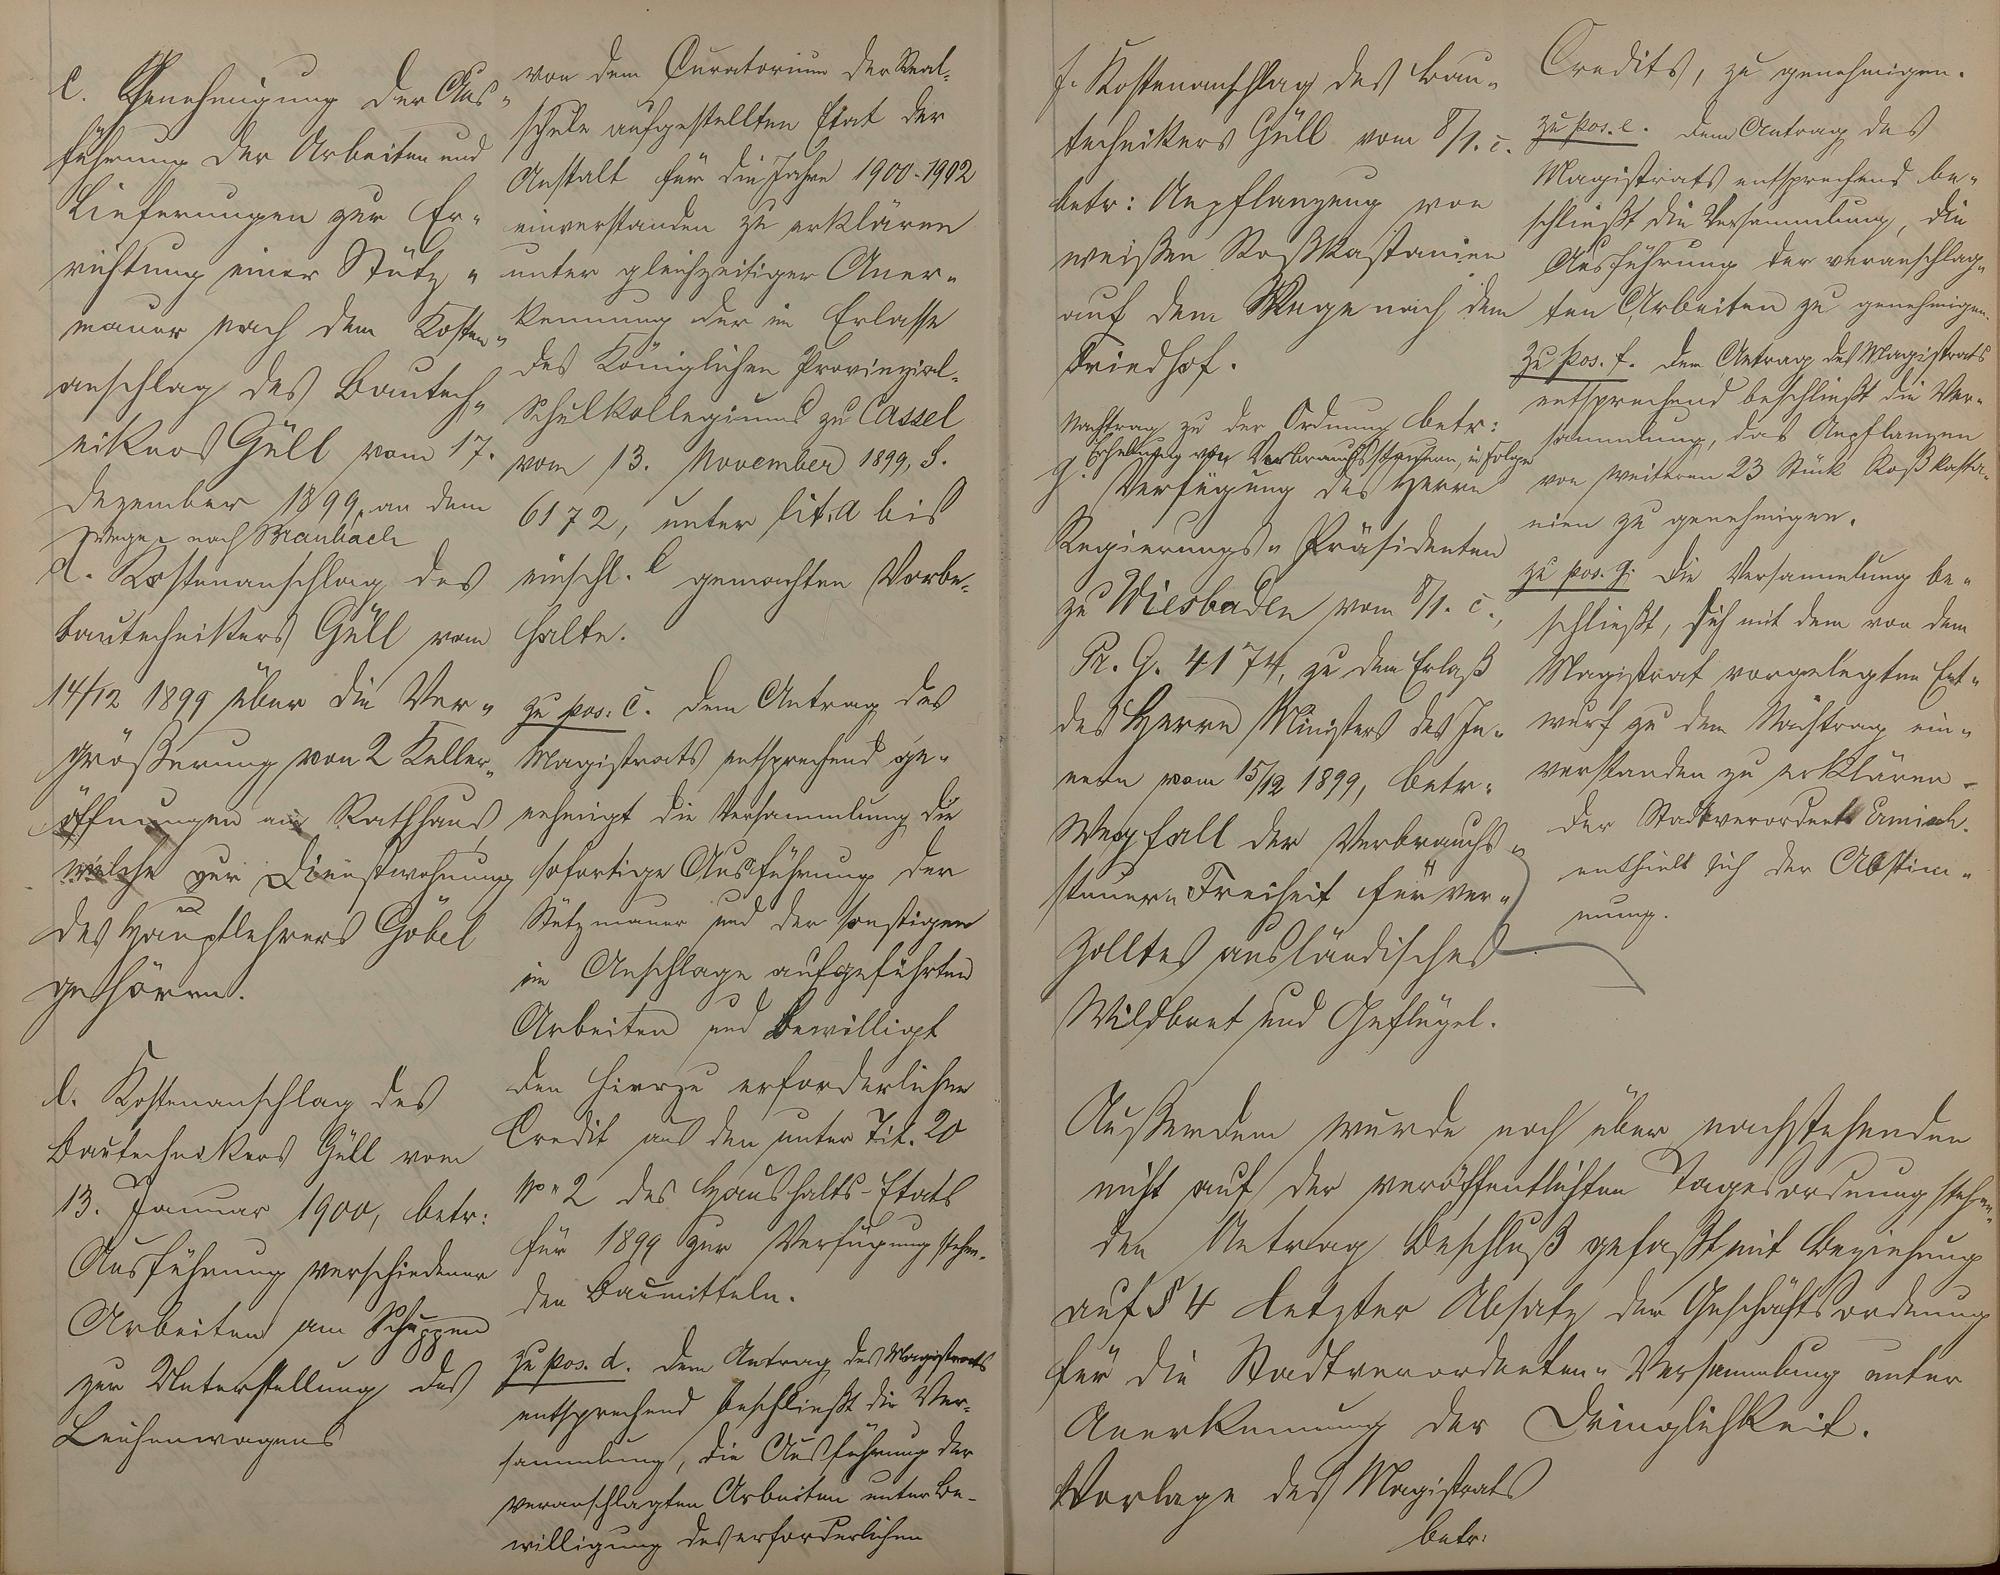 c. Genehmigung der Aus-
führung der Arbeiten und
Lieferungen zur Er-
richtung einer Stütz-
mauer nach dem Kosten-
anschlag des Bautech-
nikers Güll vom 17.
Dezember 1899, an dem
Wege nach Braubach
d. Kostenanschlag des
Bautechnikers Güll vom
14/12 1899 über die Ver-
größerung von 2 Keller-
öffnungen am Rathhaus,
welche zur Dienstwohnung
des Hauptlehrers Göbel
gehören.
e. Kostenanschlag des
Bautechnikers Güll vom
13. Januar 1900, betr:
Ausführung verschiedener
Arbeiten am Schuppen
zur Unterstellung des
Leichenwagens
von dem Curatorium der Real-
schule aufgestellten Etat der
Anstalt für die Jahre 1900-1902
einverstanden zu erklären
unter gleichzeitiger Aner-
kennung der im Erlasse
des Königlichen Provinzial-
Schulkollegiums zu Cassel
vom 13. November 1899, S.
6172, unter lit. a bis
einschl. e gemachten Vorbe-
halte.
zu pos. c. Dem Antrag des
Magistrats entsprechend ge-
nehmigt die Versammlung die
sofortige Ausführung der
Stützmauer und der sonstigen
im Anschlage aufgeführten
Arbeiten und bewilligt
den hierzu erforderlichen
Credit aus den unter Tit. 20
No 2 des Haushalts-Etats
für 1899 zur Verfügung stehen-
den Baumitteln.
zu pos. d. Dem Antrag des Magistrats
entsprechend beschließt die Ver-
sammlung, die Ausführung der
veranschlagten Arbeiten unter Be-
willigung des erforderlichen
f. Kostenanschlag des Bau-
technikers Güll vom 8/1. c.
betr: Anpflanzung von
weißen Roßkastanien
auf dem Wege nach dem
Friedhof.
Nachtrag zu der Ordnung betr:
Erhebung von Verbrauchssteuern, in Folge
g. Verfügung des Herrn
Regierungs-Präsidenten
zu Wiesbaden vom 8/1. c.,
Pr. G. 4174, zu dem Erlaß
des Herrn Ministers des In-
nern vom 15/12 1899, betr.
Wegfall der Verbrauchs-
steuer-Freiheit für ver-
zolltes ausländisches
Wildbret und Geflügel.
Credits, zu genehmigen.
zu pos. e. Dem Antrag des
Magistrats entsprechend be-
schließt die Versammlung, die
Ausführung der veranschlag-
ten Arbeiten zu genehmigen.
zu pos. f. Dem Antrag des Magistrats
entsprechend beschließt die Ver-
sammlung, das Anpflanzen
von weiteren 23 Stück Roßkasta-
nien zu genehmigen.
zu pos. g. Die Versammlung be-
schließt, sich mit dem von dem
Magistrat vorgelegten Ent-
wurf zu dem Nachtrag ein-
verstanden zu erklären.
Der Stadtverordnete
enthielt sich der Abstim-
mung.
Außerdem wurde noch über nachstehenden
nicht auf der veröffentlichten Tagesordnung stehen-
den Antrag Beschluß gefaßt mit Beziehung
auf § 4 letzter Absatz der Geschäftsordnung
für die Stadtverordneten-Versammlung unter
Anerkennung der Dringlichkeit.
Vorlage des Magistrats
betr: